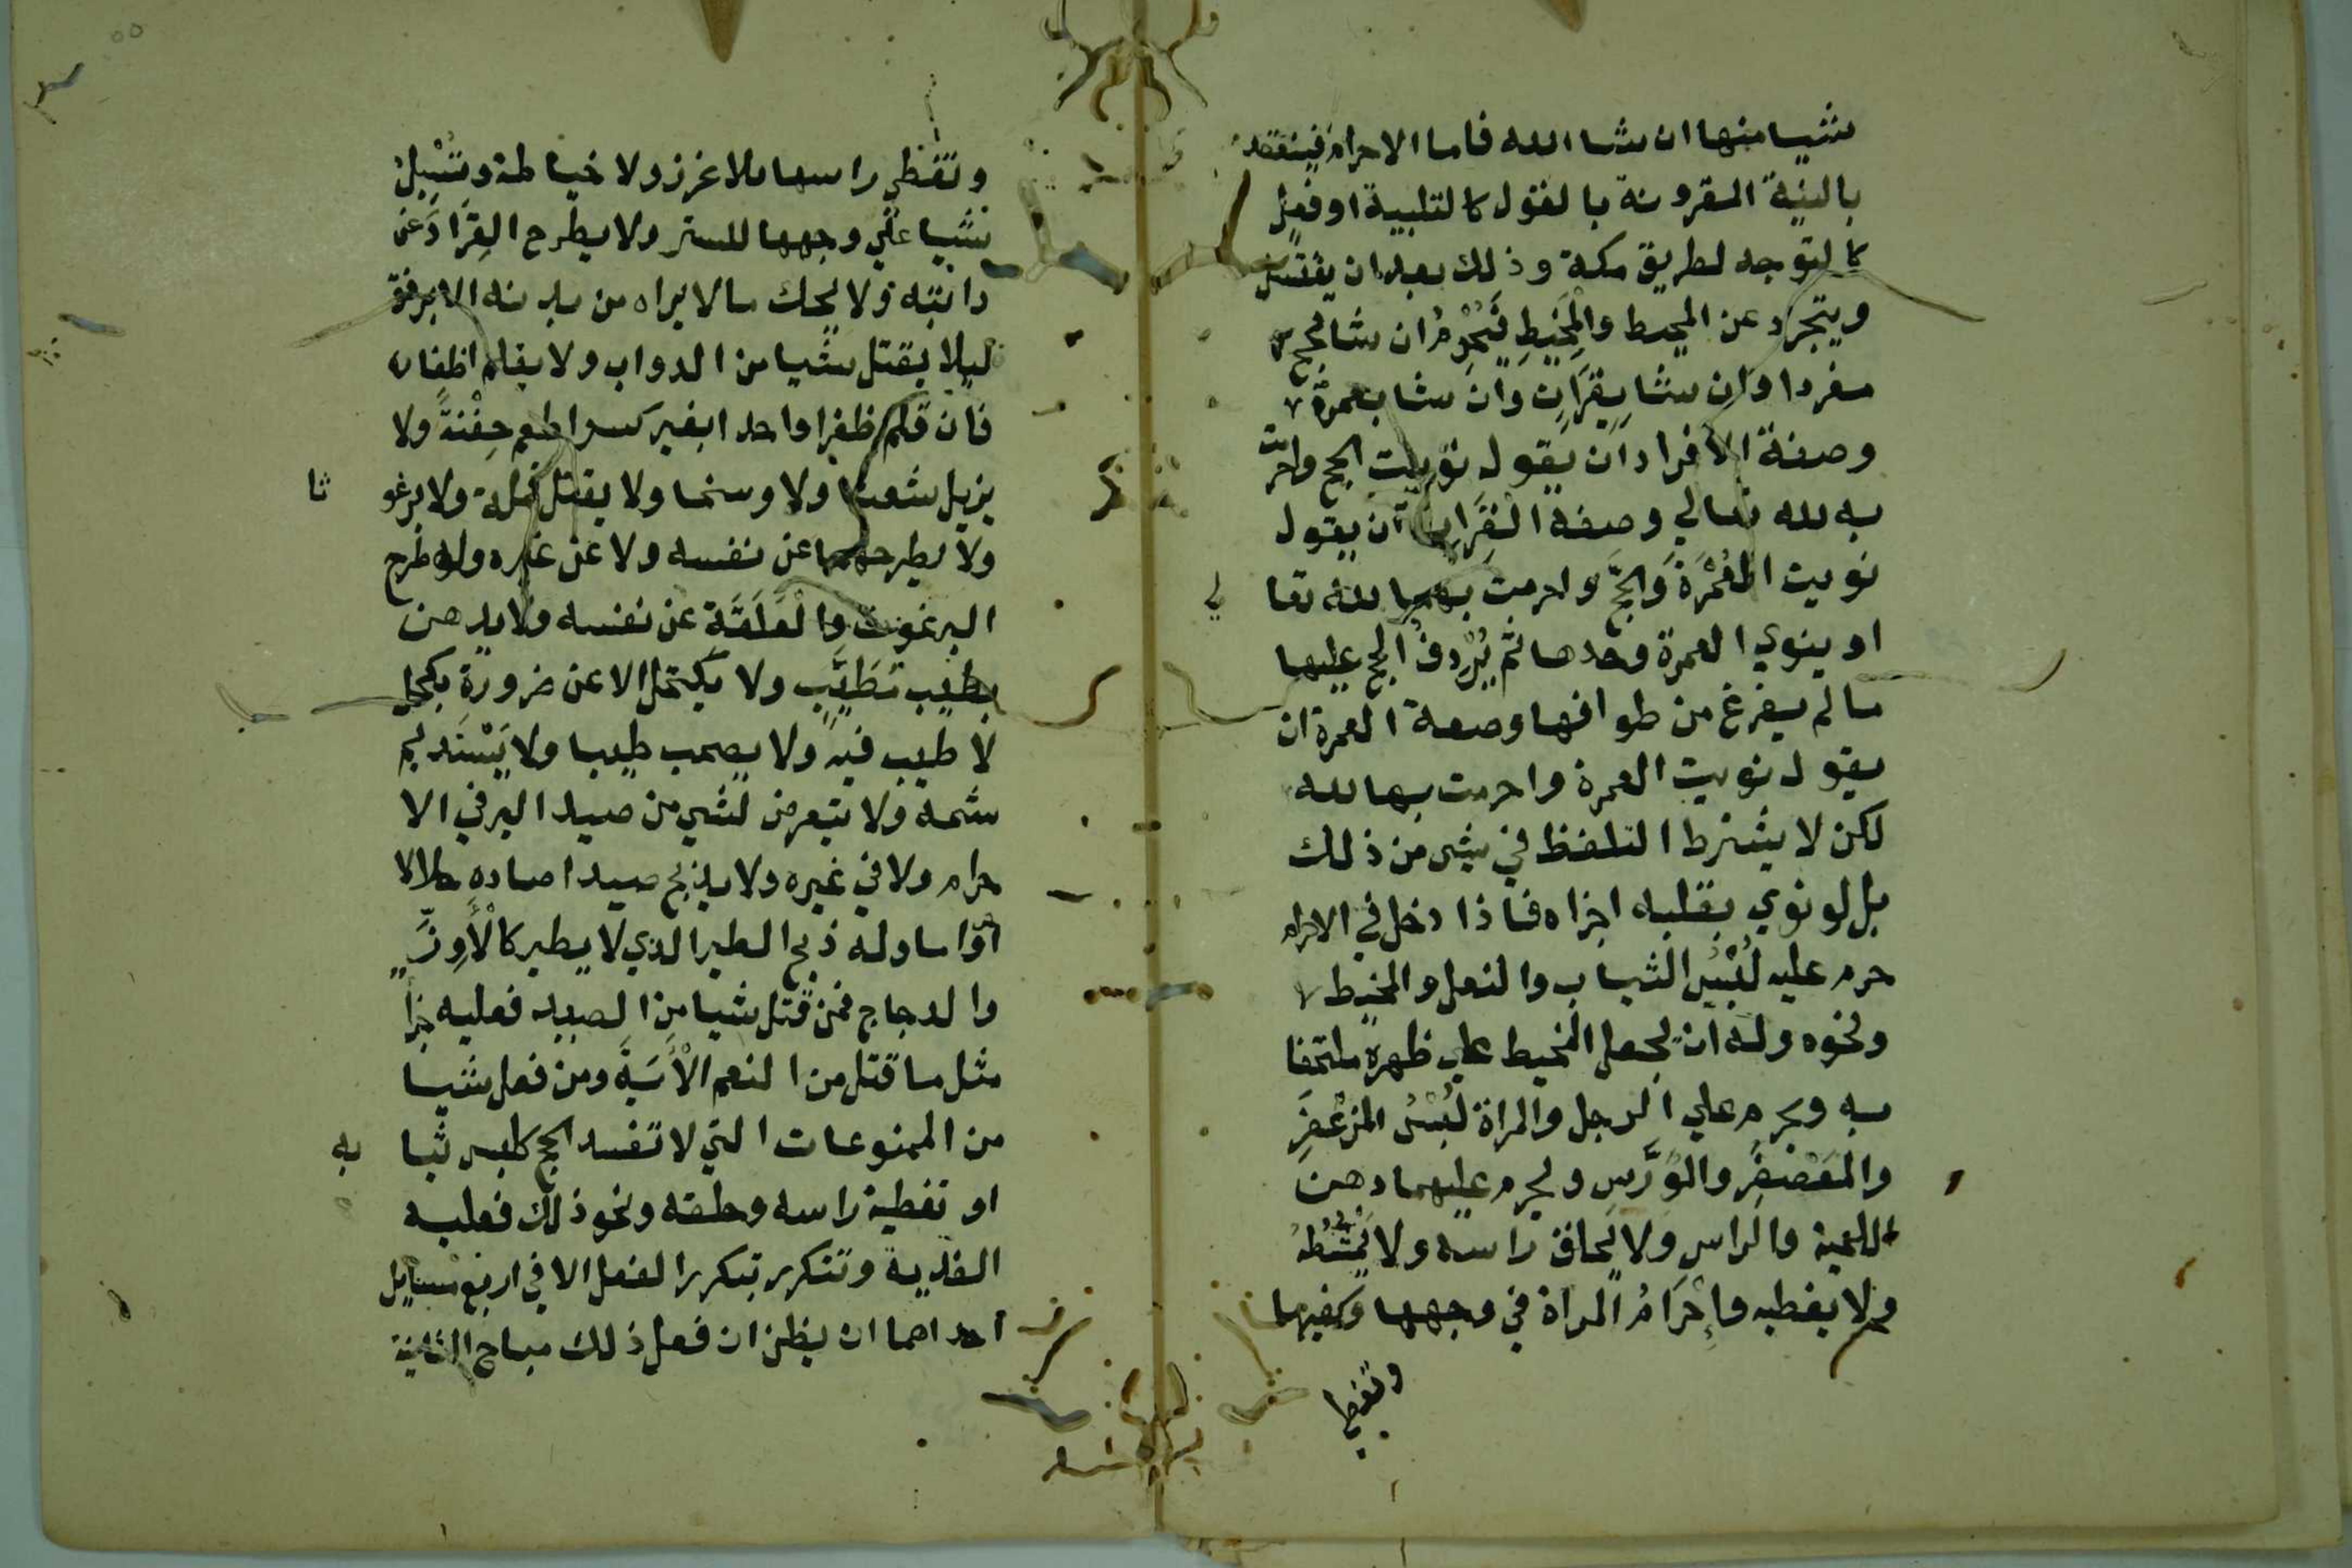 شيا منها ان شا الله فاما الاحرام فينعقد
بالنية المقرونة بالقول كالتلبية او فعل
كالتوجه لطريق مكة وذلك بعد ان يغتسل
ويتجرد عن المحيط والمخيط فيحرم ان شا بحج
مفردا وان شا بقران وان شا بعمرة
وصفة الافراد ان يقول نويت الحج واحرمت
به لله تعالي وصفة القران ان يقول
نويت العمرة والحج واحرمت بهما لله تعا
لي
او ينوي العمرة وحدها ثم يردف الحج عليها
مالم يفرغ من طوافها وصفة العمرة ان
يقول نويت العمرة واحرمت بها لله
لكن لا يشترط التلفظ في شي من ذلك
بل لو نوي بقلبه اجزاه فاذا دخل في الاحرام
حرم عليه لبس الثياب والنعل والمخيط
ونحوه وله ان يجعل المخيط علي ظهره ملتحفا
به ويحرم علي الرجل والمراة لبس المزعفر
والمعصفر والورس ويحرم عليهما دهن
اللحية والراس ولا يحلق راسه ولا يمشطه
ولا يغطيه وإحرام المراة في وجهها وكفيها
وتغطي
وتغطي راسها بلا غرز ولا خياطة وتسبل
شيا علي وجهها للستر ولا يطرح القراد عن
دابته ولا يحك مالا يراه من بدنه الا برفق
ليلا يقتل شيا من الدواب ولا يقلم اظفاره
فان قلم ظفرا واحدا بغير كسر اطعم حفنة ولا
يزيل شعثا ولا وسخا ولا يقتل قملة ولا برغو
ثا
ولا يطرحهما عن نفسه ولا عن غيره وله طرح
البرغوث والعلقة عن نفسه ولا يدهن
بطيب تطيب ولا يكتحل الا عن ضرورة بكحل
لا طيب فيه ولا يصحب طيبا ولا يستديم
شمه ولا يتعرض لشي من صيد البر في الا
حرام ولا في غيره ولا يذبح صيدا صاده حلالا
او حراما وله ذبح الطير الذي لا يطير كالأوز
والدجاج فمن قتل شيا من الصيد فعليه جزا
مثل ما قتل من النعم الأنسية ومن فعل شيا
من الممنوعات التي لا تفسد الحج كلبس ثيا
به
او تغطية راسه وحلقه ونحو ذلك فعليه
الفدية وتتكرر بتكرر الفعل الا في اربع مسايل
احداهما ان يظن ان فعل ذلك مباح الثانية